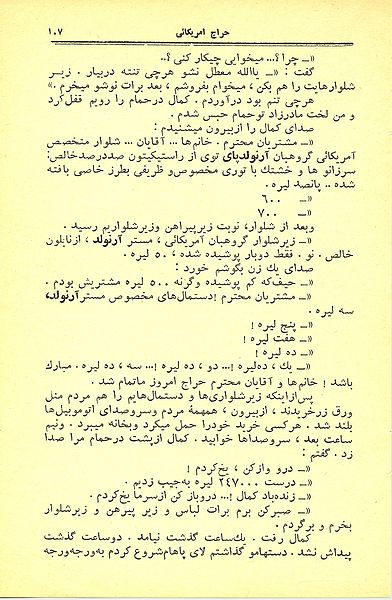 حراج امریکائی ۱۰۷
«ـ چرا؟... میخوایی چیکار کنی؟..
گفت: «ـ یاالله معطل نشو هرچی تنته دربیار. زیر
شلوارهایت را هم بکن، میخوام بفروشم، بعد برات نوشو میخرم.»
هرچی تنم بود درآوردم. کمال درحمام را رویم قفل‌کرد
و من لخت مادرزاد توحمام حبس شدم.
صدای کمال را ازبیرون میشنیدم:
«ـ مشتریان محترم. خانم‌ها... آقایان... شلوار متخصص
آمریکائی گروهبان آرنولدبای توی از راستیکیتون صددرصدخالص:
سرزانو ها و خشتك با توری مخصوص‌و ظریفی بطرز خاصی بافته
شده.. پانصد لیره.
«ـ ۶۰۰
«ـ ۷۰۰
وبعد از شلوار، نوبت زیرپیراهن وزیرشلواریم رسید.
«ـ زیرشلوار گروهبان آمریکائی، مستر آرنولد، ازنایلون
خالص. نو. فقط دوبار پوشیده شده، ۵۰ لیره.
صدای یك زن بگوشم خورد:
«ـ حیف‌که کم پوشیده وگرنه ۵۰۰ لیره مشتریش بودم.
«ـ مشتریان محترم! دستمال‌های مخصوص مسترآرنولد،
سه لیره.
«ـ پنج لیره!
«ـ هفت لیره!
«ـ ده لیره!
«ـ یك، ده‌لیره!... دو، ده لیره!... سه، ده لیره. مبارك
باشد! خانم‌ها و آقایان محترم حراج امروز ماتمام شد.
پس‌ازاینکه زیرشلواری‌ها و دستمال‌هایم را هم مردم مثل
ورق زرخریدند، ازبیرون، همهمۀ مردم وسروصدای اتوموبیل‌ها
بلند شد. هرکسی خرید خودرا حمل میکرد وبخانه میبرد. ونیم
ساعت بعد، سروصداها خوابید. کمال ازپشت درحمام مرا صدا
زد. گفتم:
«ـ درو وازکن، یخ‌کردم!
«ـ درست ۲۴۷۰۰۰ لیره به‌جیب زدیم.
«ـ زنده‌باد کمال!... دروباز کن ازسرما یخ‌کردم.
«ـ صبرکن برم برات لباس و زیر پیرهن و زیرشلوار
بخرم و برگردم.
کمال رفت. یك‌ساعت گذشت نیامد. دوساعت گذشت
پیداش نشد. دستهامو گذاشتم لای پاهام‌شروع کردم به‌ورجه‌ورجه